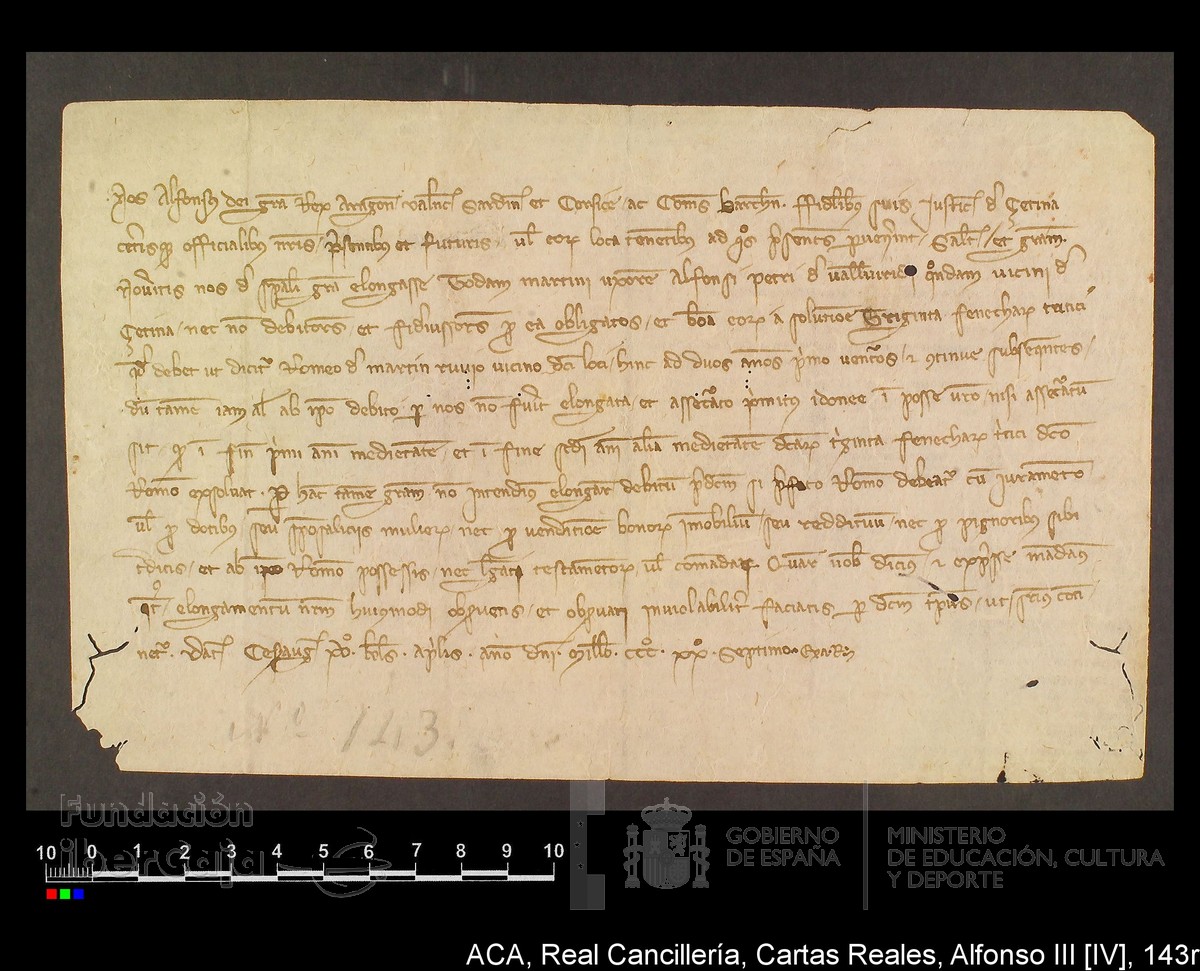 Nos Alfonsus dei gra Rex Aragon Valenc Sardin et Corsice ac Comes Barchn. ffidelibus suis Justic d Cetina
ceterisque officialibus nris presentibus et futuris vl eor loca tenentibus ad quos presentes pvenerint Saltm et gram
Noveritis nos d spali gra elongasse Todam martini uxore Alfonsi petri d quondam vicini d
Cetina nec no debitores et fidiussores p ea obligatos et bona eor a solutioe Triginta fenechar tritici
qd debet ut dicit Romeo d martin vicino dci loci hinc ad duos annos primo ventos et continue subsequentes
dum tame iam al ab ipo debito p nos no fuerit elongata et assecurato primitus idonee i posse vro nisi assecuratum
sit qp i fin primi anni medietate et i fine scdi anni alia medietate dcar triginta fenechar tritici dco
Romeo exsolvat. P hac tame gram no intendimus elongar debitum pdcm si Romeo debeat cu iuramento
vl p dotibus seu sposaliciis mulier nec p venditioe bonor imobilium seu reddituum nec p pignoribus sibi
tradicis et ab ipo Romeo possessis nec testamentor vl comandar Quare vob dicimus et expresse mandamus
qt elongamentum nrm huiusmodi observetis et observari inviolabiliter faciatis p dcm tempus ut conti
net. Dat Cesaug xvo kls aplis anno dni Millo ccc xx Septimo Exa R
No 143.
Fundación
ibercaja
10 0 1 2 3 4 5 6 7 8 9 10
GOBIERNO
DE ESPAÑA
MINISTERIO
DE EDUCACIÓN, CULTURA
Y DEPORTE
ACA, Real Cancillería, Cartas Reales, Alfonso III [IV], 143r